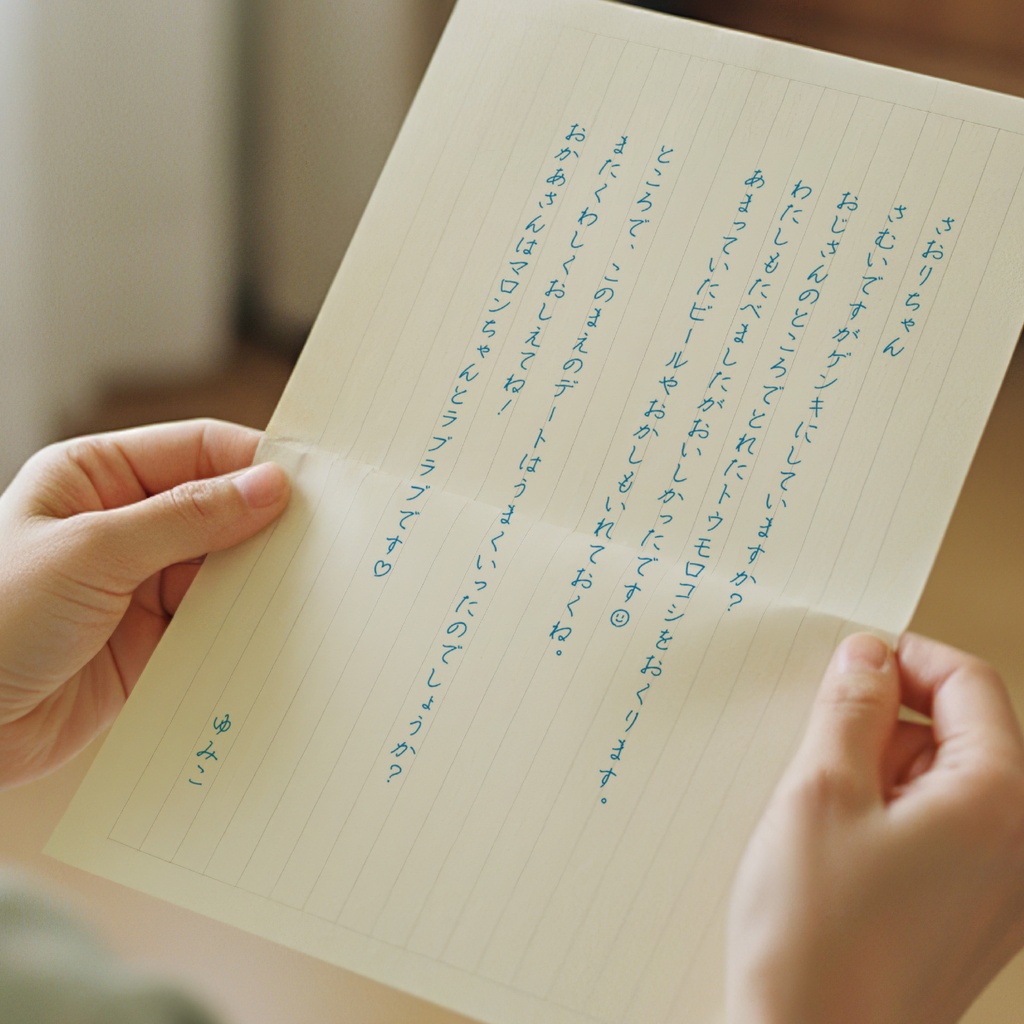 さおりちゃん
さむいですがゲンキにしていますか？
おじさんのところでとれたトウモロコシをおくります。
わたしもたべましたがおいしかったです☺
あまっていたビールやおかしもいれておくね。
ところで、このまえのデートはうまくいったのでしょうか？
またくわしくおしえてね！
おかあさんはマロンちゃんとラブラブです♡
ゆみこ